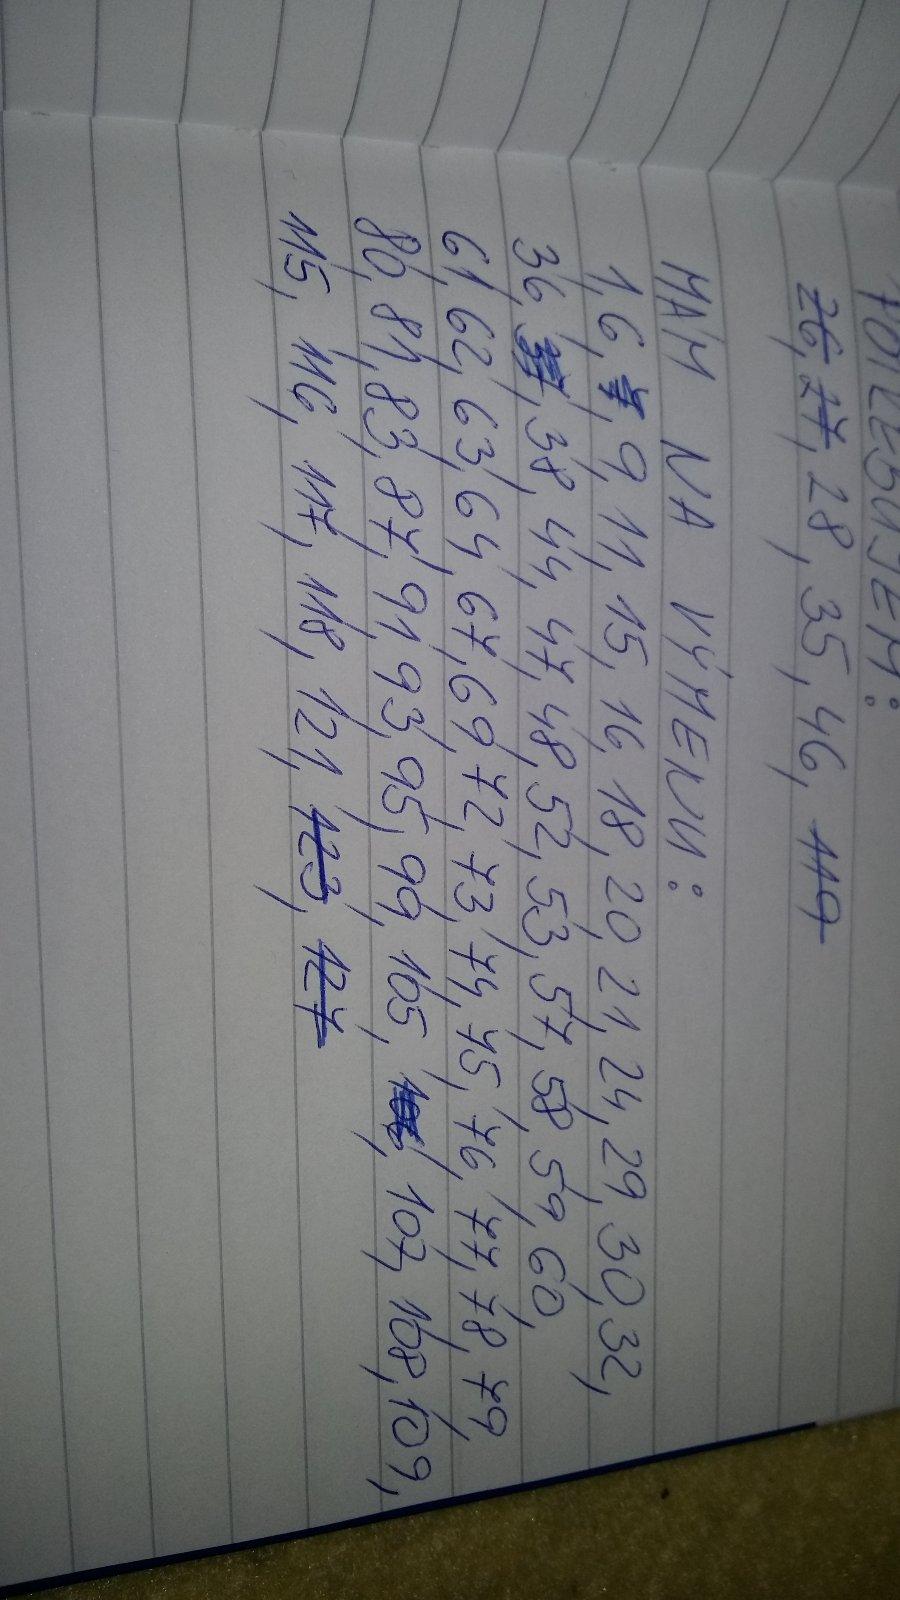 POTŘEBUJEM:
26, 27, 28, 35, 46, 119
MÁM NA VÝMĚNU:
1, 6, 7, 9, 11, 15, 16, 18, 20, 21, 24, 29, 30, 32,
36, 38, 44, 47, 48, 52, 53, 57, 58, 59, 60,
61, 62, 63, 64, 67, 69, 72, 73, 74, 75, 76, 77, 78, 79,
80, 81, 83, 87, 91, 93, 95, 99, 105, 107, 108, 109,
115, 116, 117, 118, 121, 123, 127